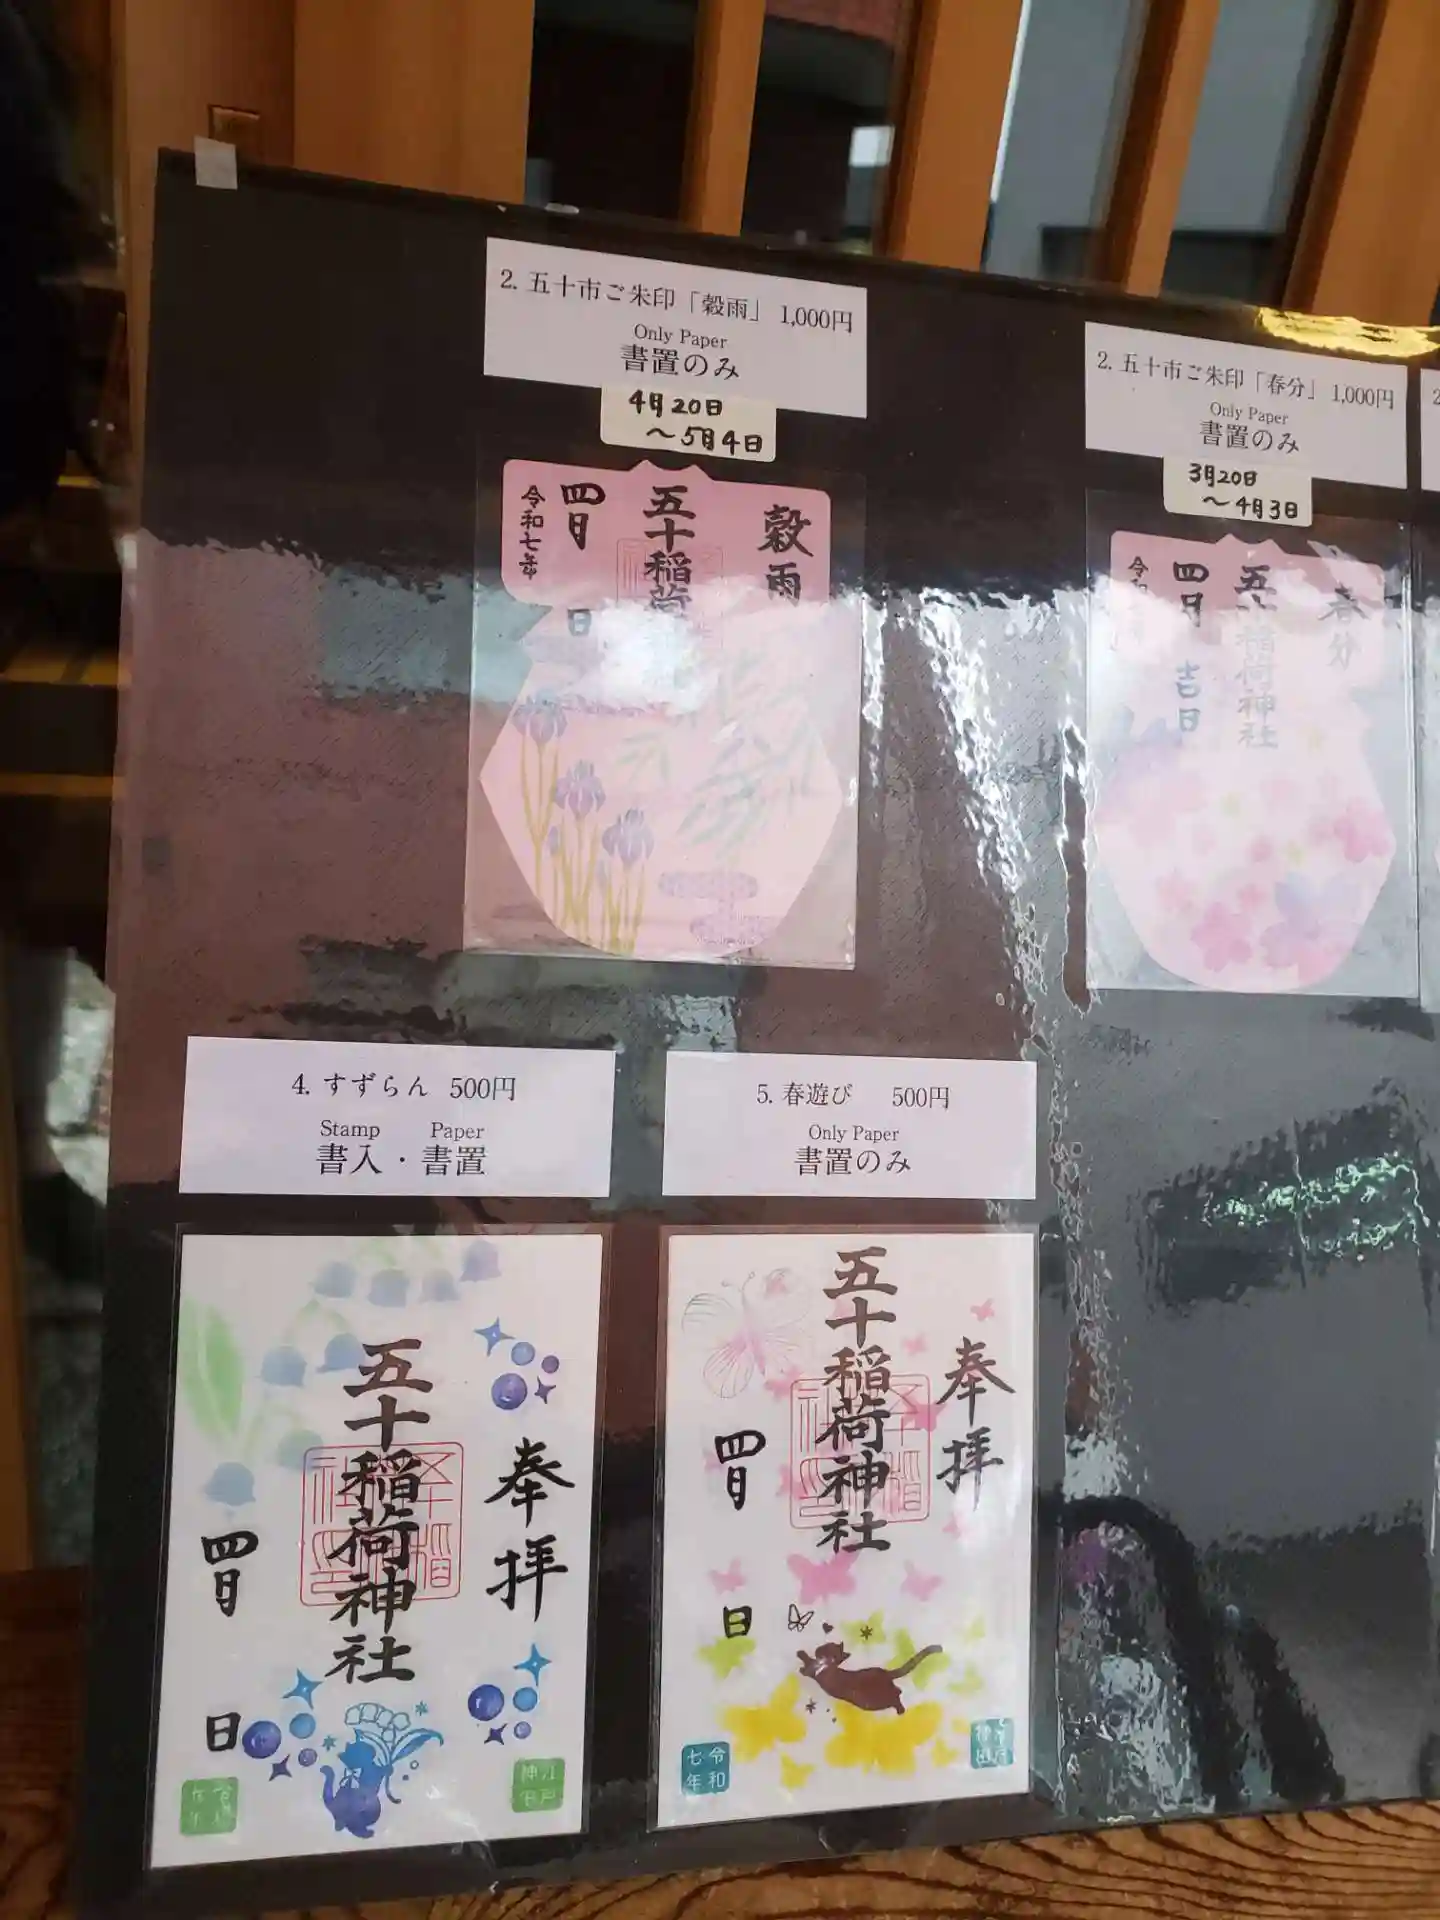 2. 五十市ご朱印「穀雨」 1,000円
Only Paper
書置のみ
4月20日
～5月4日
穀雨
五十稲荷
四月
日
令和七年
2. 五十市ご朱印「春分」 1,000円
Only Paper
書置のみ
3月20日
～4月3日
春分
五十稲荷神社
四月
吉日
令和
4. すずらん 500円
Stamp Paper
書入・書置
奉拝
五十稲荷神社
四月
日
5. 春遊び 500円
Only Paper
書置のみ
奉拝
五十稲荷神社
四月
日
令和
七年